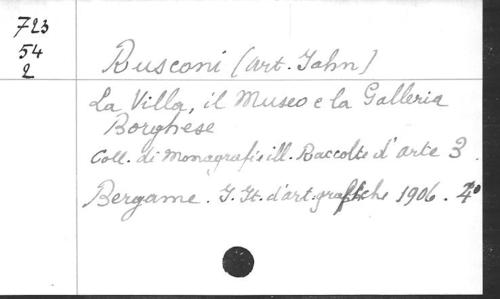 723
54
2
Rusconi (Art. Jahn)
La Villa, il Museo e la Galleria
Borghese
Coll. di Monografie ill. Raccolte d'arte 3.
Bergame. I. It. d'art. grafiche 1906. 4°